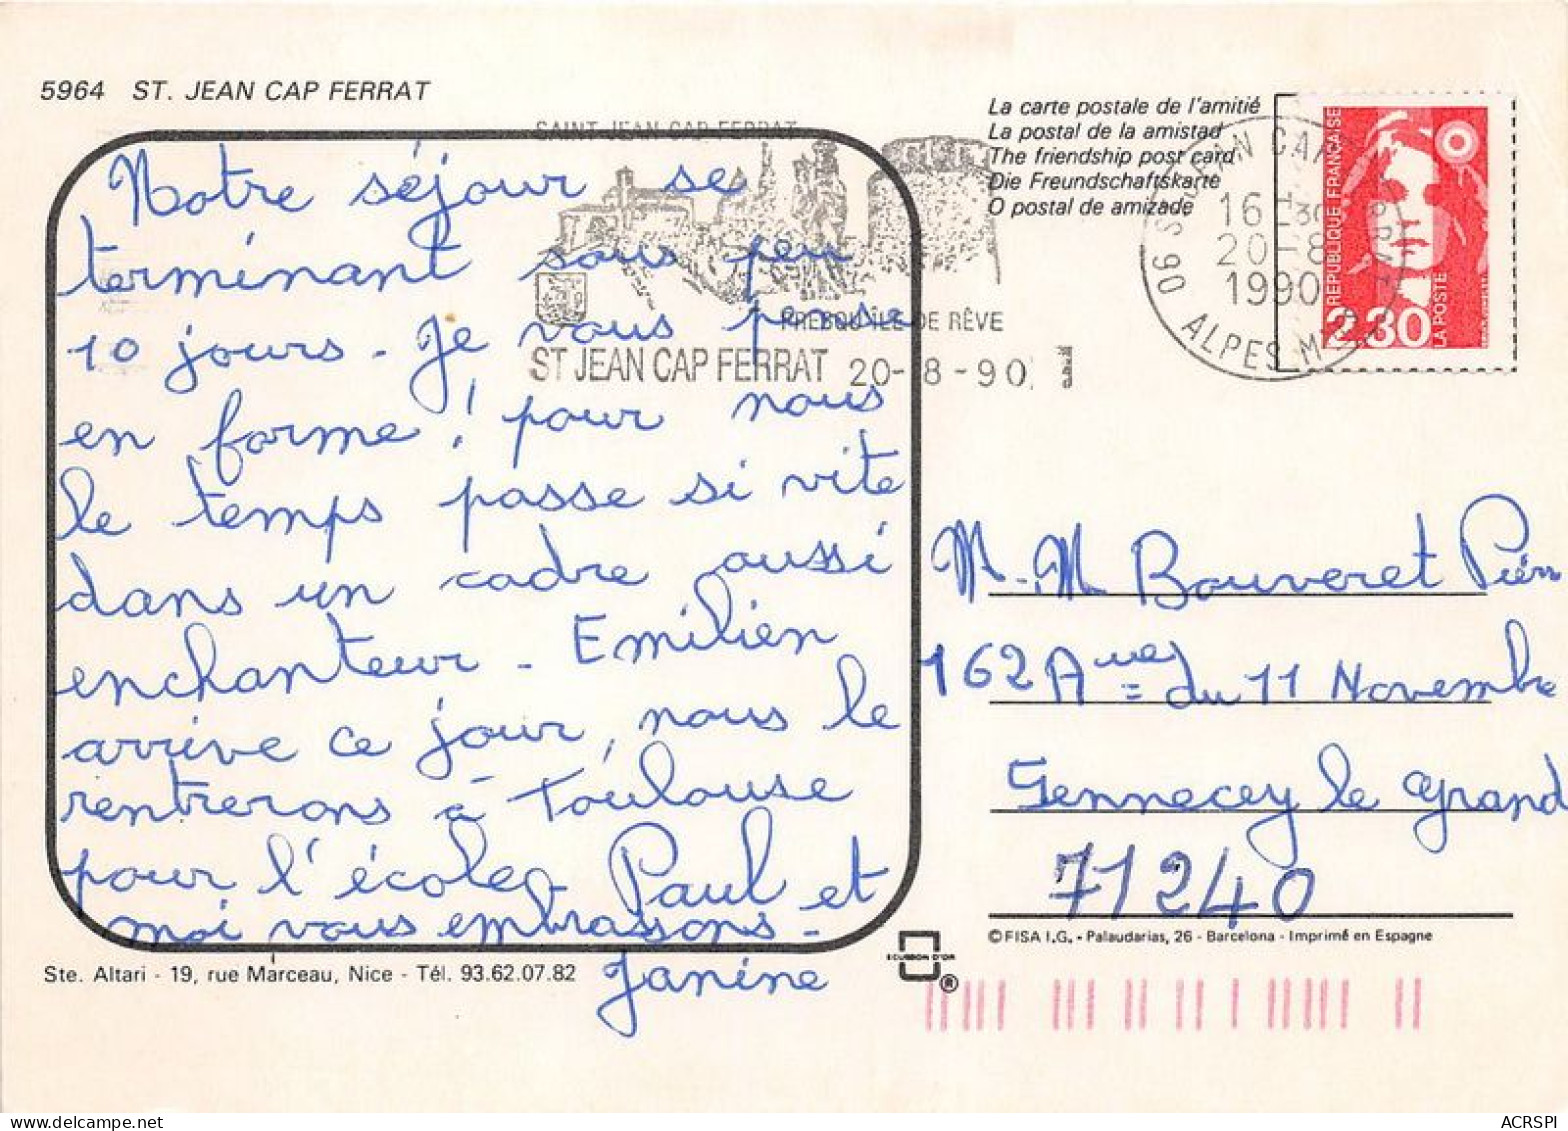 5964 ST. JEAN CAP FERRAT
La carte postale de l'amitié
La postal de la amistad
The friendship post card
Die Freundschaftskarte
O postal de amizade
SAINT JEAN CAP FERRAT
PRESQU'ÎLE DE RÊVE
ST JEAN CAP FERRAT 20-8-90
16-30
20-8
1990
06 ALPES
REPUBLIQUE FRANÇAISE
2.30
LA POSTE
Notre séjour se
terminant sous peu
10 jours - Je vous pense
en forme ! pour nous
le temps passe si vite
dans un cadre aussi
enchanteur - Emilien
arrive ce jour, nous le
rentrerons à Toulouse
pour l'école, Paul et
moi vous embrassons -
Janine
M. M Bouveret Pierre
162 Aue du 11 Novembre
Sennecey le Grand
71240
© FISA I.G. - Palaudarias, 26 - Barcelona - Imprimé en Espagne
ECUSSON D'OR
®
Ste. Altari - 19, rue Marceau, Nice - Tél. 93.62.07.82
ACRSPI